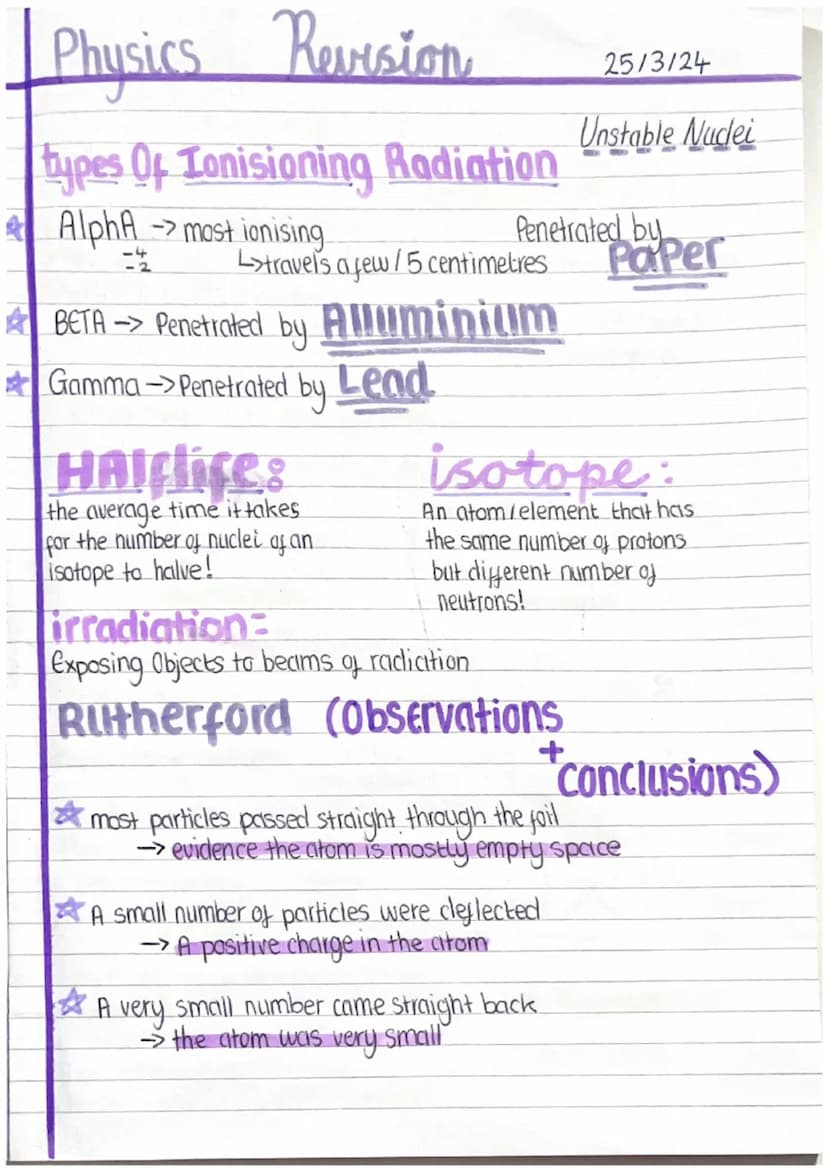 Physics Revision 25/3/24
Unstable Nuclei
types Of Ionisioning Radiation
AlphA -> most ionising Penetrated by
-4
-2
↳travels a few / 5 centimetres PaPER
BETA -> Penetrated by Alluminium
Gamma -> Penetrated by Lead
HAlflife:
the average time it takes
for the number of nuclei of an
isotope to halve!
isotope:
An atom/element that has
the same number of protons
but different number of
neutrons!
irradiation=
Exposing Objects to beams of radiation
Rutherford (Observations
+
conclusions)
most particles passed straight through the foil
-> evidence the atom is mostly empty space
A small number of particles were deflected
-> A positive charge in the atom
A very small number came straight back
-> the atom was very small